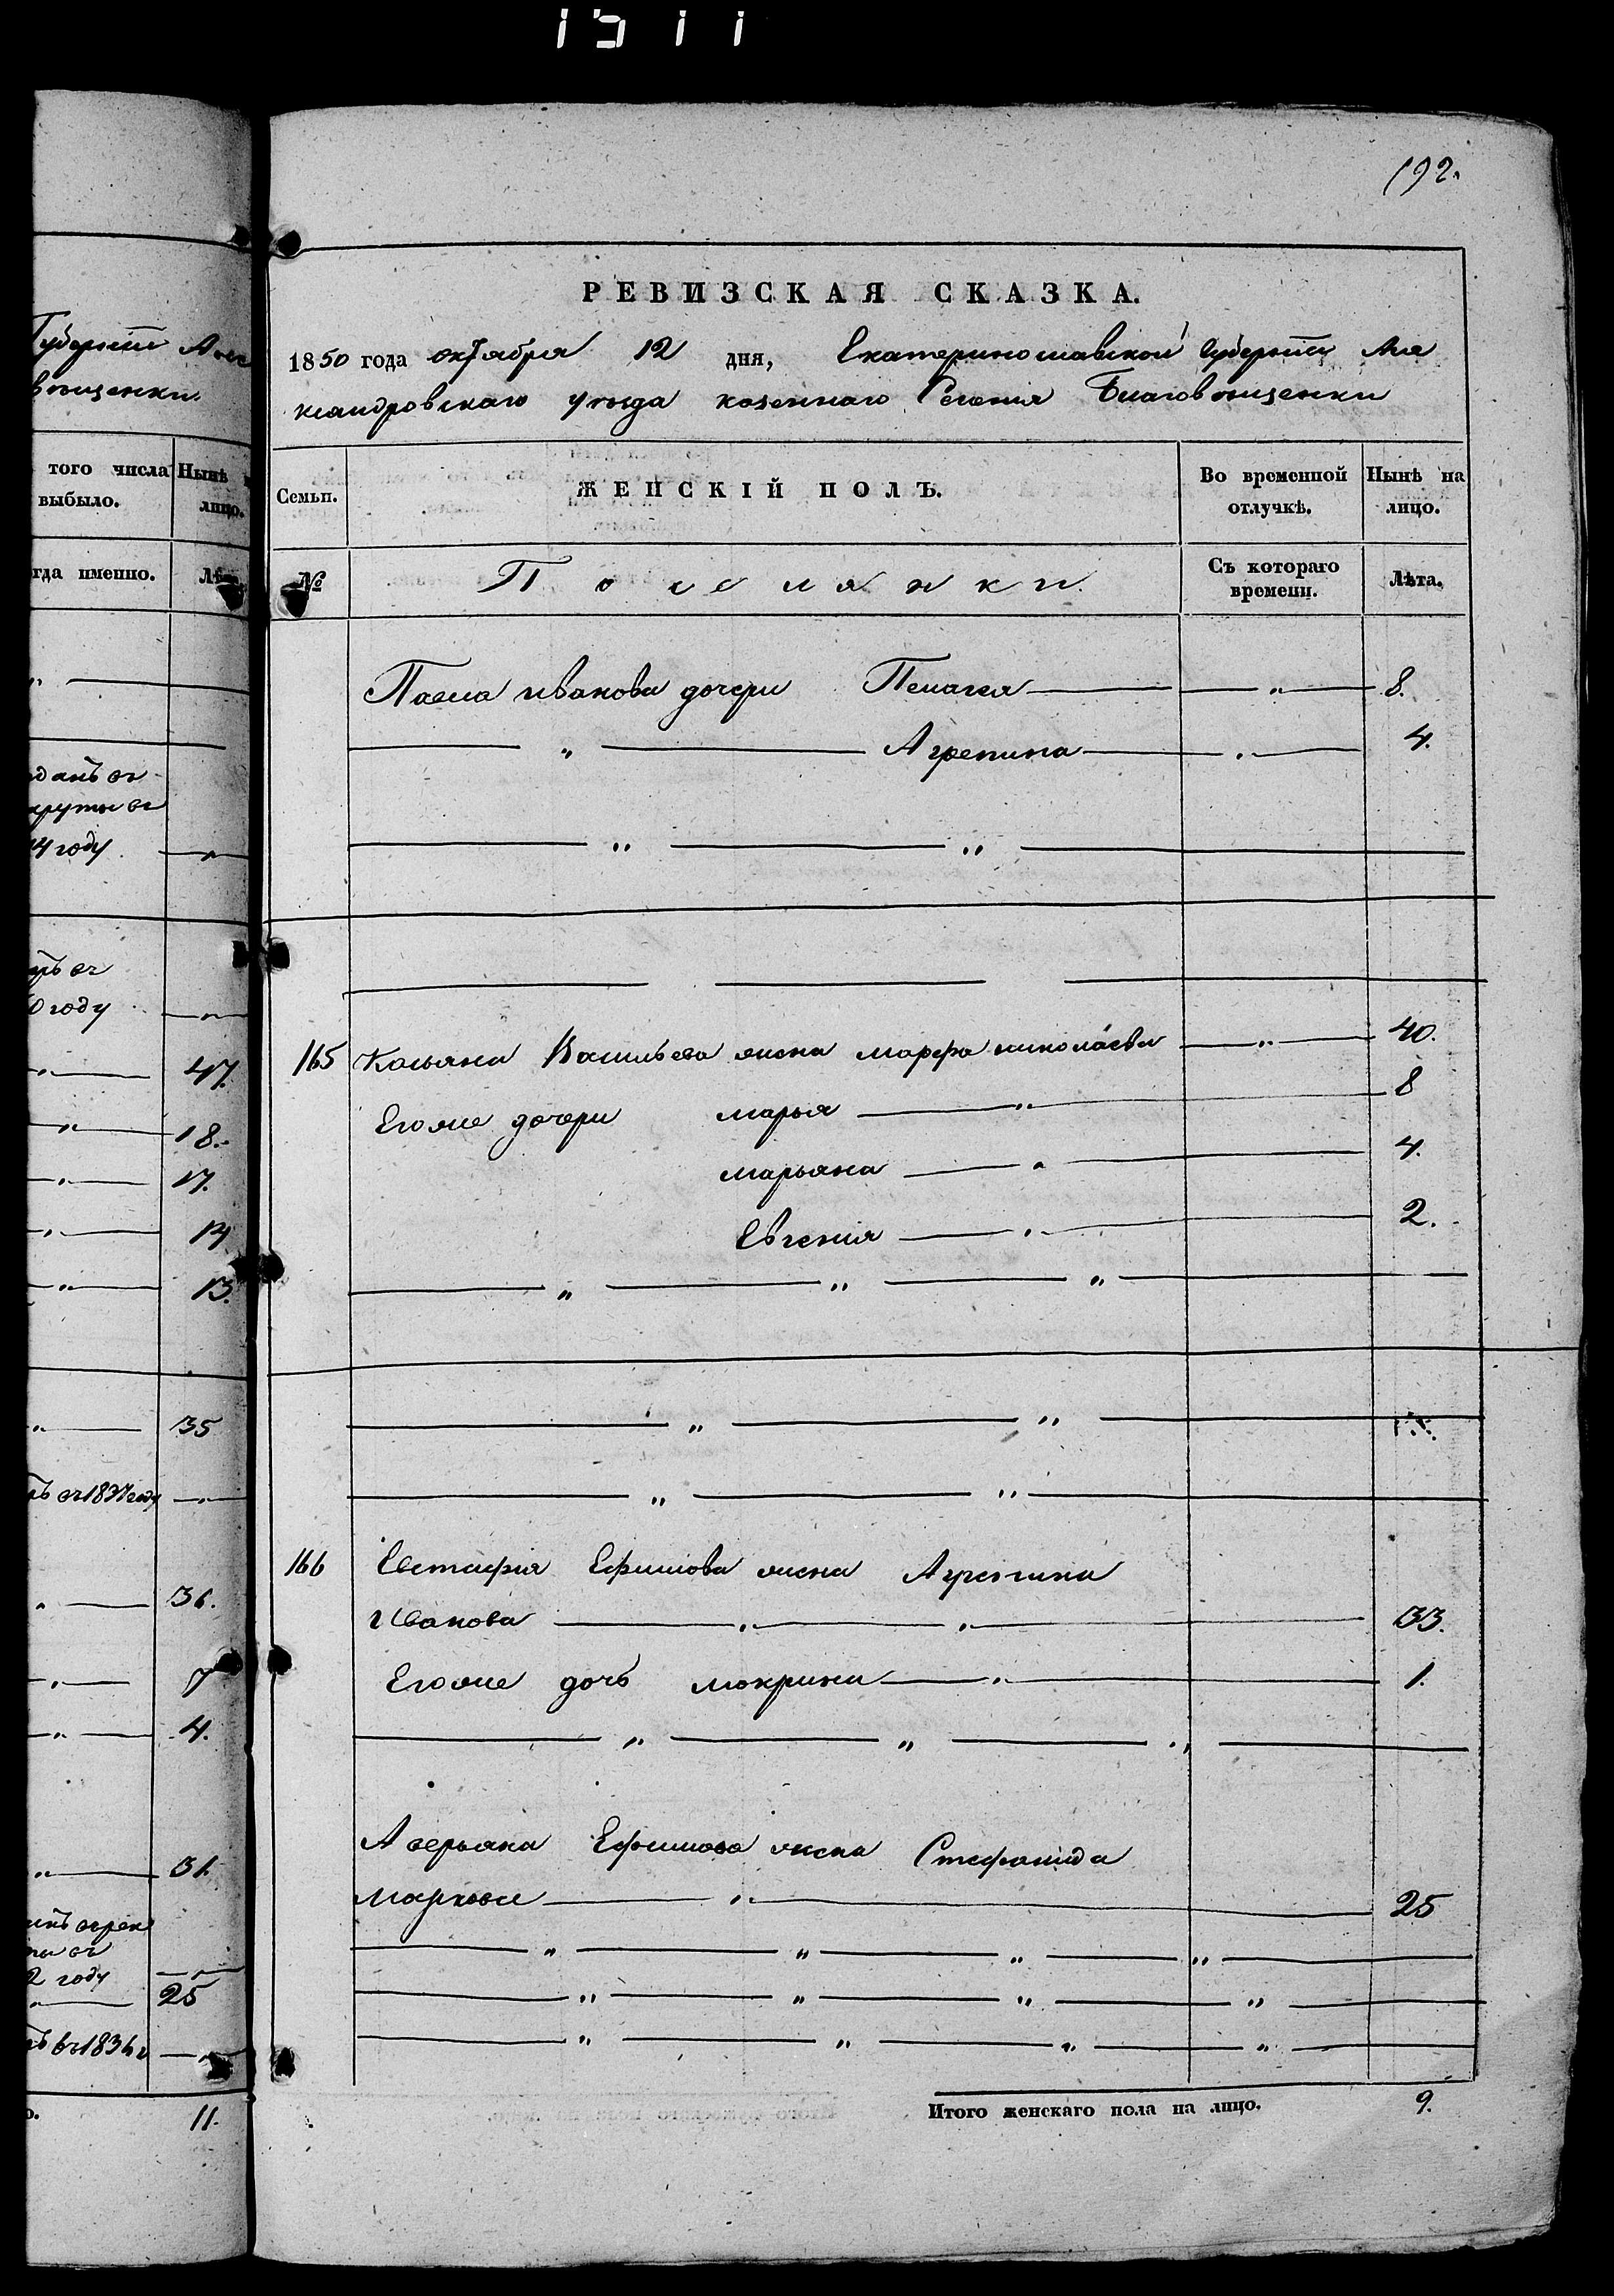 1511
192.
Губерніи Алек
вѣщенки
того числа Нынѣ
выбыло. лицо.
гда именно. Лѣта
14 году
0 году
47.
18.
17.
14
13.
35
въ 1837 году
36.
7
4.
31.
2 году
25
въ 1834
11.
РЕВИЗСКАЯ СКАЗКА.
1850 года октября 12 дня, Екатеринославской Губерніи Але
ксандровскаго уѣзда казеннаго Селенія Благовѣщенки
Семьи. ЖЕНСКІЙ ПОЛЪ. Во временной отлучкѣ. Нынѣ на лицо.
№ Поселянки. Съ котораго времени. Лѣта.
Павла Иванова дочери Пелагея — „ — 8.
— „ — Агрепина — „ — 4.
165 Касьяна Васильева жена Марфа Николаева — „ — 40.
Егоже дочери Марья — „ — 8
Марьяна — „ — 4.
Евгенія — „ — 2.
166 Евстафія Ефимова жена Агрепина
Иванова — „ — „ — 33.
Егоже дочь Мокрина — „ — 1.
Аверьяна Ефимова жена Стефанида
Маркова — „ — 25
Итого женскаго пола на лицо. 9.